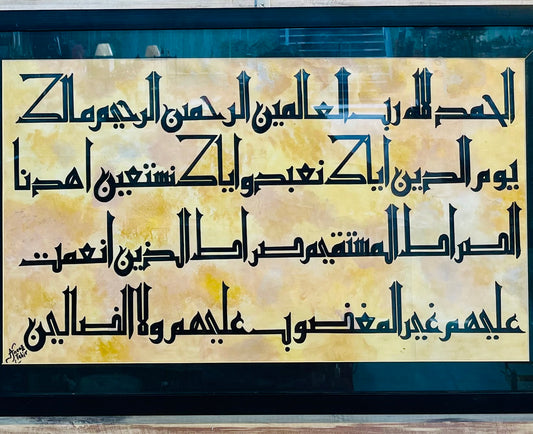 الحمد لله رب العالمين الرحمن الرحيم مالك
يوم الدين اياك نعبد واياك نستعين اهدنا
الصراط المستقيم صراط الذين انعمت
عليهم غير المغضوب عليهم ولا الضالين